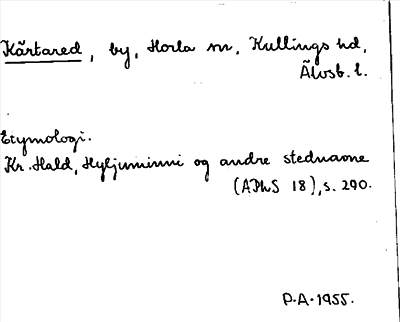 Kårtared, by, Horla sn, Kullings hd,
Älvsb. l.
Etymologi.
Kr. Hald, Hyljuminni og andre stednavne
(APhS 18), s. 290.
P.A. 1955.